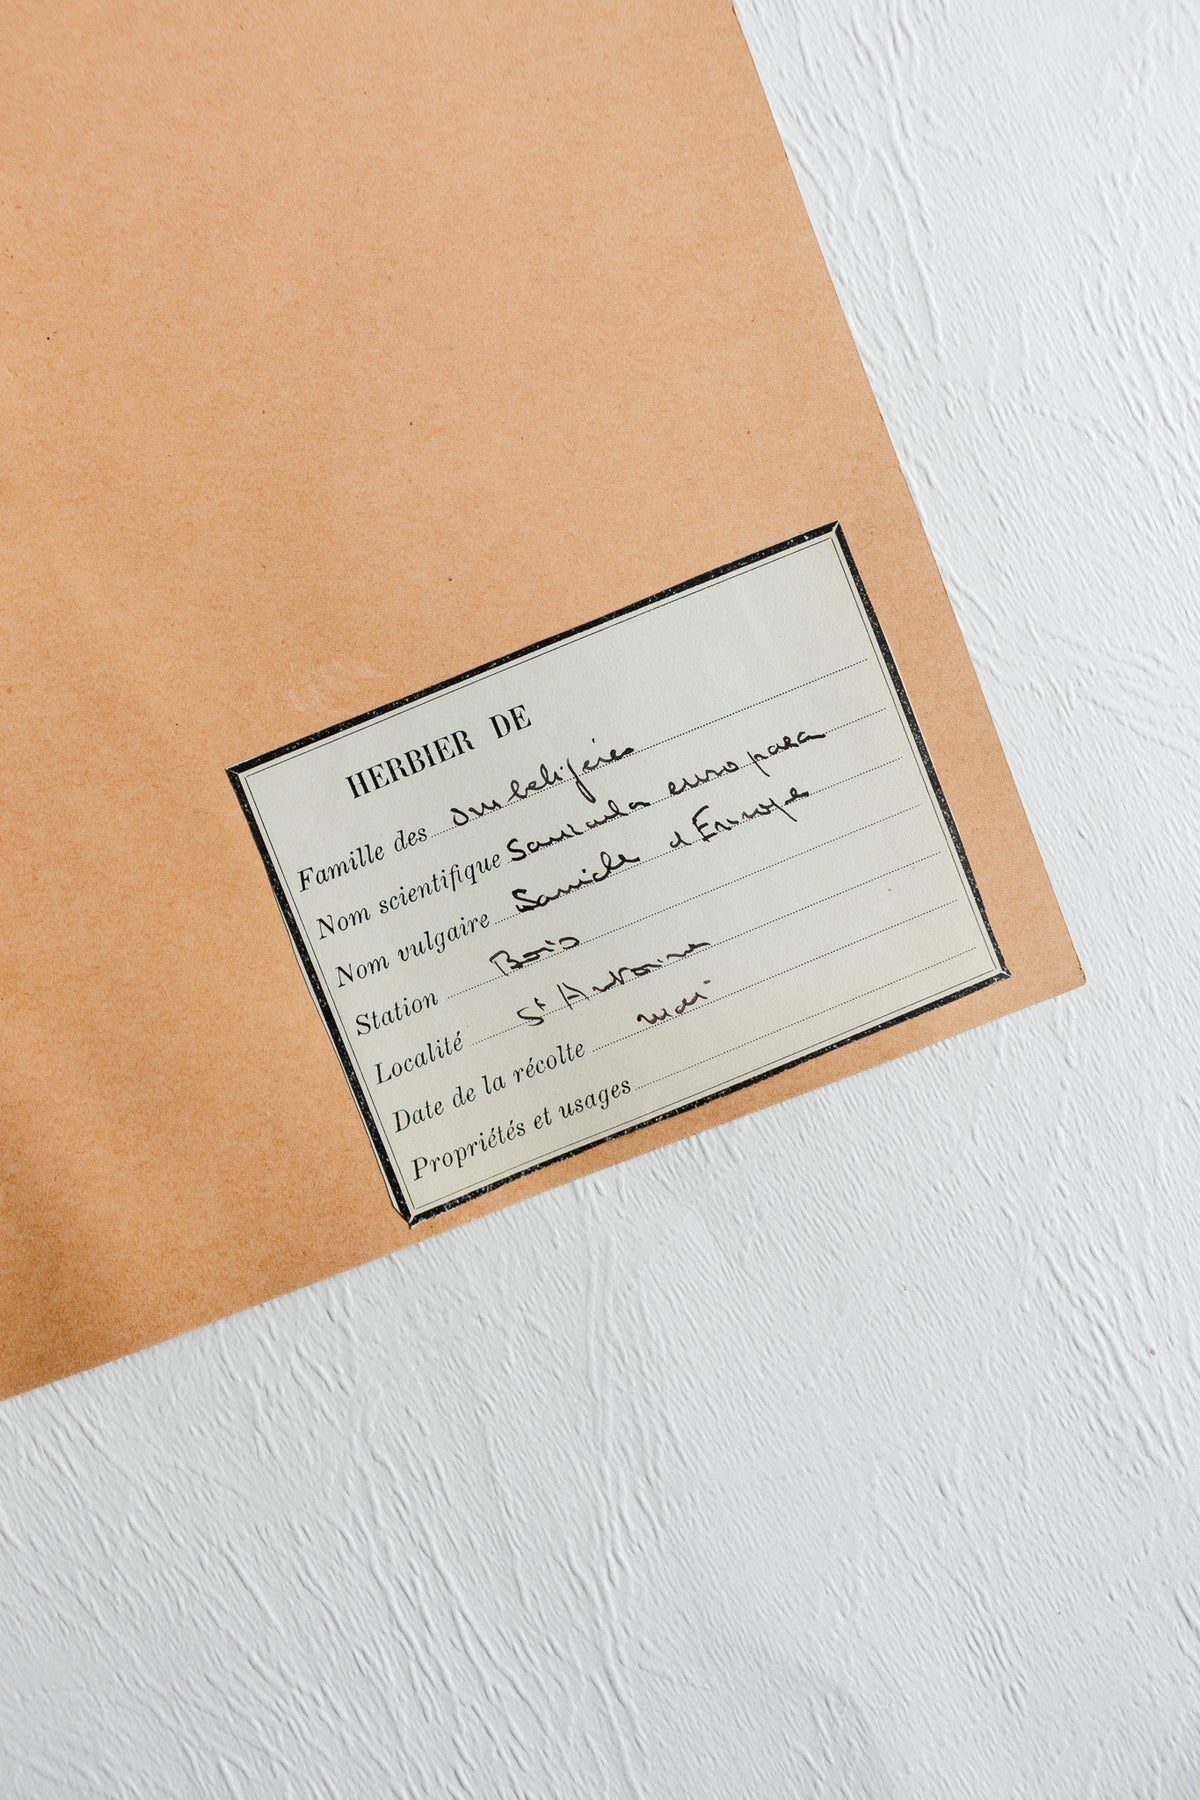 HERBIER DE
Famille des ombelifères
Nom scientifique Sanicula europaea
Nom vulgaire Sanicle d'Europe
Station Bois
Localité St Antoine
Date de la récolte mai
Propriétés et usages